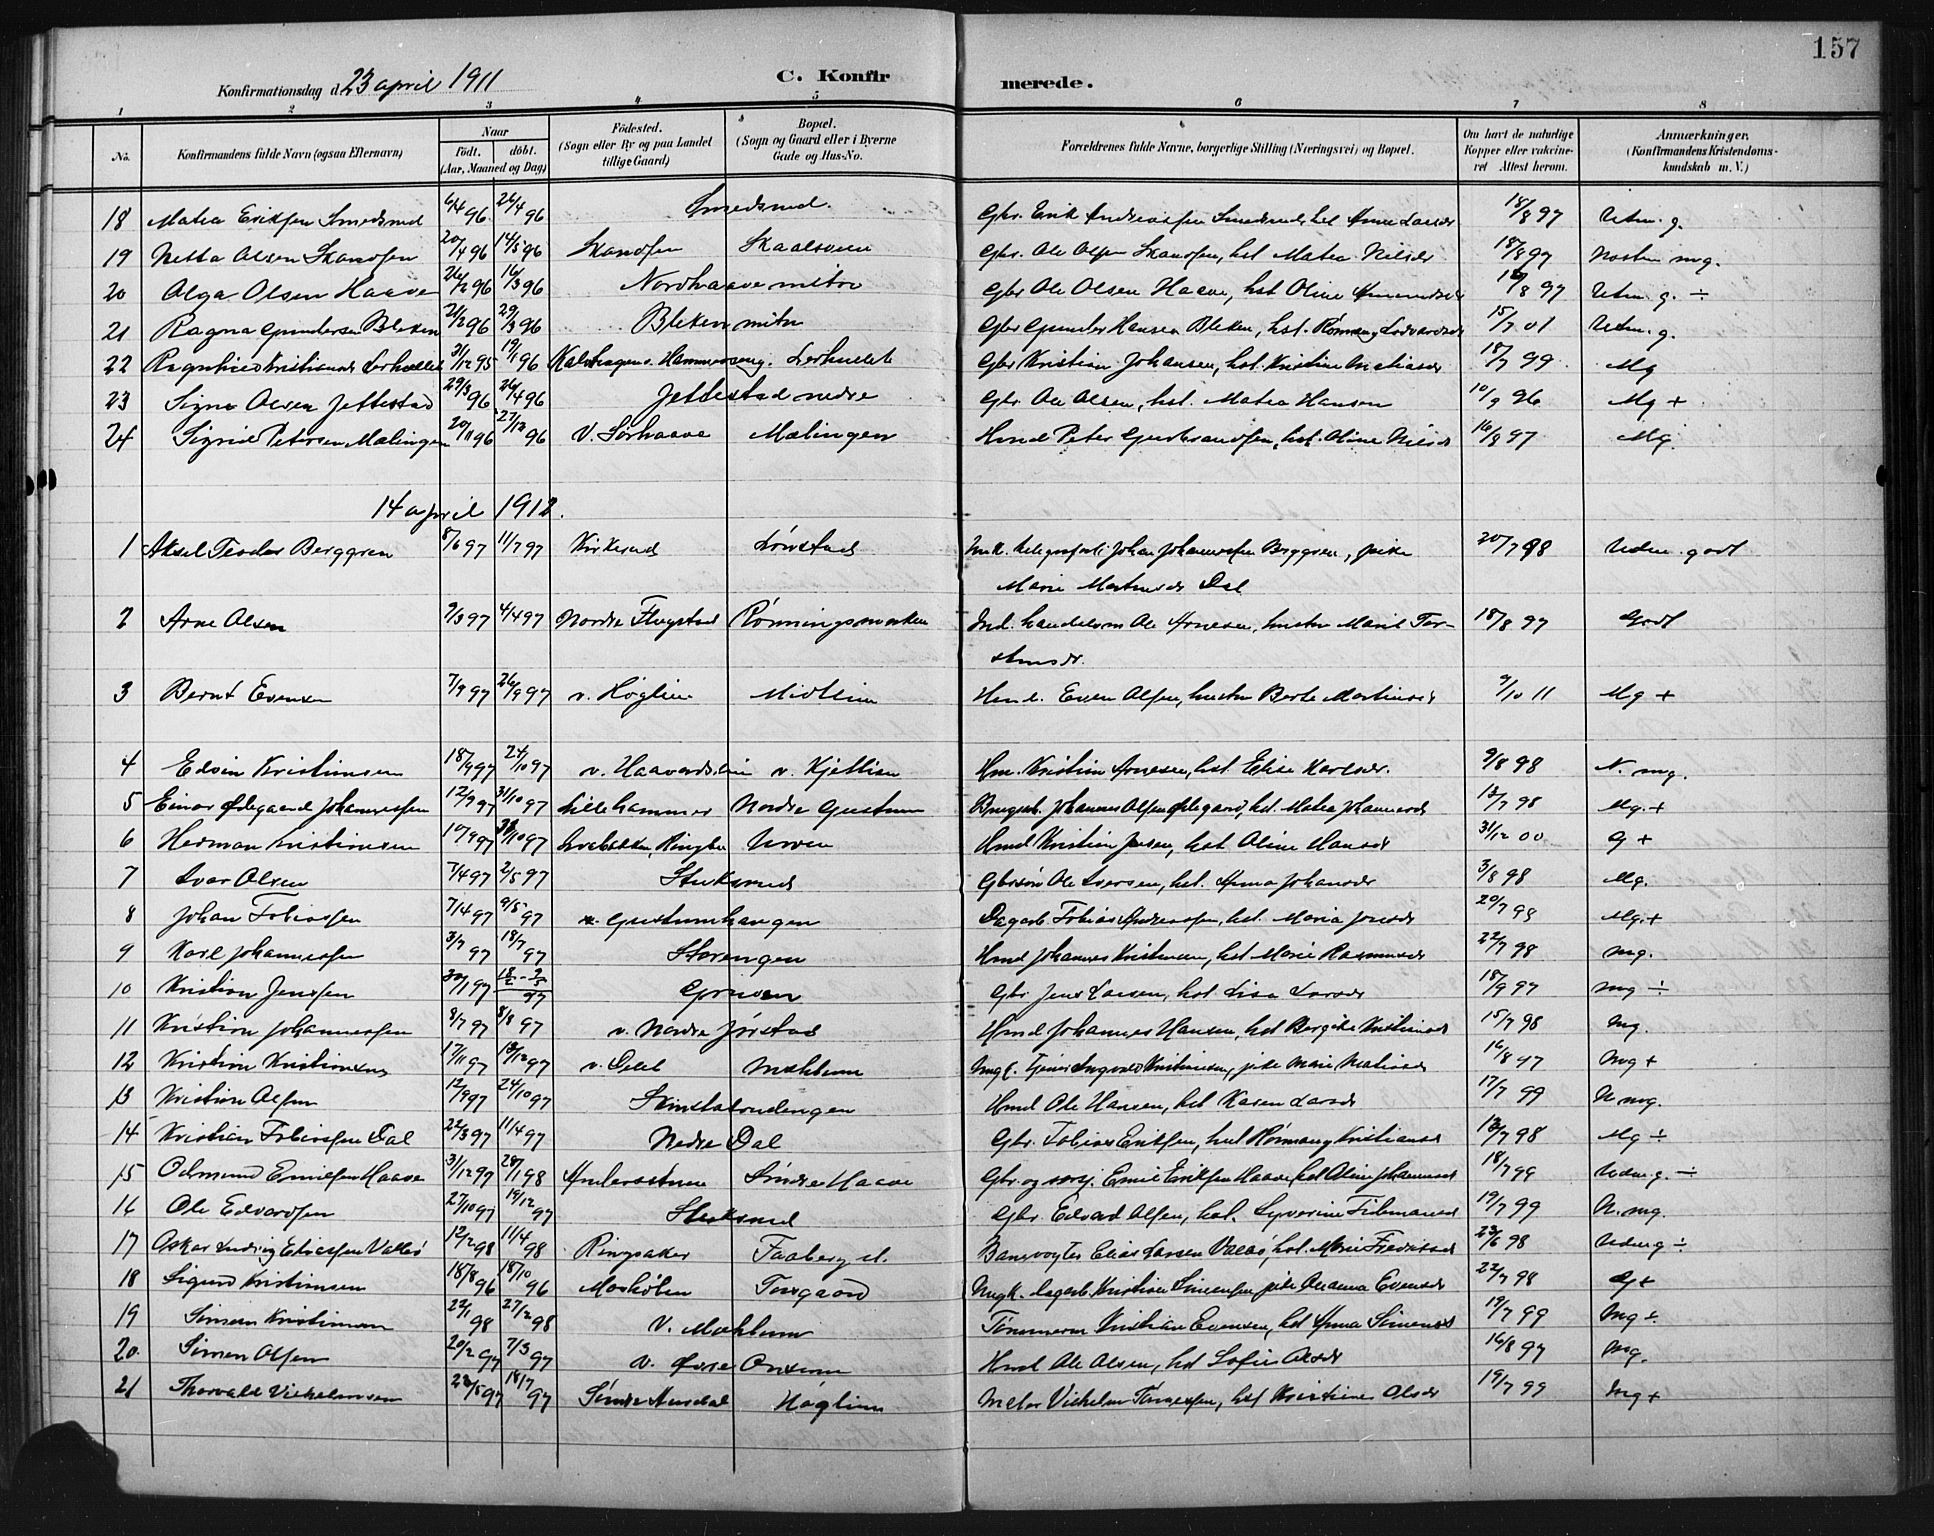 157
Konfirmationsdag d. 23 april 1911
C. Konfirmerede.
1 2 3 4 5 6 7 8
No. Konfirmandens fulde Navn (ogsaa Efternavn) Naar Født. døbt. (Aar, Maaned og Dag) Fødested. (Sogn eller By og paa Landet tillige Gaard) Bopæl. (Sogn og Gaard eller i Byerne Gade og Hus-No. Forældrenes fulde Navne, borgerlige Stilling (Næringsvei) og Bopæl. Om havt de naturlige Kopper eller vakcineret Attest herom. Anmærkninger. (Konfirmandens Kristendomskundskab m. V.)
18 Matea Eriksen Smedsrud 6/4 96 26/4 96 Smedsrud Gbr. Erik Andreassen Smedsrud, hst Anne Larsdr 18/8 97 Udm. g.
19 Netta Olsen Skandsen 20/4 96 14/5 96 Skandsen Skaalsveen Gbr. Ole Olsen Skandsen, hst Matea Nielsdr 18/8 97 Næsten mg.
20 Olga Olsen Haave 26/2 96 16/3 96 Nordhaave nitre Gbr Ole Olsen Haave, hst Oline Amundsdr 17/8 97 Udm. g. ÷
21 Ragna Gundersen Bleken 21/2 96 29/3 96 Bleken nitre Gbr Gunder Hansen Bleken, hst. Rønnaug Lodvardsdr 15/7 01 Udm. g.
22 Kristiansdr Lerhaallet 31/12 95 19/1 96 Kalvhagen v. Hammereng. Gbr Kristian Johansen, hst. Kristine Matiasdr 18/7 99 Mg
23 Signe Olsen Jettestad 29/3 96 26/4 96 Jettestad nedre Gbr. Ole Olsen, hst. Matea Hansen 10/9 96 Mg +
24 Sigrid Petersen Mælingen 20/11 96 27/12 96 v. Sørhaave Mælingen Hmd Peter Gudbrandsen, hst. Oline Nilsdr 16/8 97 Mg.
14 april 1912.
1 Aksel Teodor Berggren 8/6 97 11/7 97 Kirkerud Lørstad Ink. telegrafarb. Johan Johannessen Berggren, pike
Marie Martinusdr Dal 20/7 98 Udm. godt
2 Arne Olsen 2/3 97 4/4 97 Nordre Flugstad Rønningsmarken Ind. handelsm Ole Arnesen, hustru Marie Tor-
stensdr. 18/8 97 Godt
3 Bernt Evensen 7/9 97 26/9 97 v. Høglien Midtlien Hmd. Even Olsen, hustru Berte Martinusdr 9/10 11 Mg +
4 Edvin Kristiansen 18/9 97 24/10 97 v. Haavardslien v. Kjetlien Hm. Kristian Arnesen, hst. Elise Karlsdr. 9/8 98 N. mg.
5 Einar Ødegaard Johannessen 12/9 97 31/10 97 Lillehammer Nordre Gustum Brugsb. Johannes Olsen Ødegaard, hst. Matea Johannesdr 12/7 98 Mg. +
6 Herman Kristiansen 10/9 97 31/10 97 Lvebakken, Ringbu Urven Hmd Kristian Jensen, hst. Oline Hansdr 31/12 00 G +
7 Ivar Olsen 7/4 97 2/5 97 Stuksrud Gbrsøn Ole Iversen, hst. Anna Johansdr 3/8 98 Mg.
8 Johan Tobiassen 7/4 97 9/5 97 Gustumhaugen Dagarb. Tobias Andreassen, hst. Maria Jonsdr 20/7 98 Mg. +
9 Karl Johannessen 3/7 97 18/7 97 Storengen Hmd Johannes Kristiansen, hst Marie Rasmusdr 22/7 98 mg.
10 Kristian Jenssen 30/1 97 Gruven Gbr Jens Larsen, hst. Lisa Larsdr 18/9 97 mg ÷
11 Kristian Johannessen 8/7 97 8/8 97 v. Nordre Jørstad Hmd Johannes Hansen, hst Bergitte Kristiansdr 15/7 98 Mg.
12 Kristian Kristiansen 17/11 97 18/12 97 v. Dalet Mæhlum Ungk. tjener Ingvald Kristiansen, pike Marie Matiasdr 16/8 97 Mg +
13 Kristian Olsen 12/9 97 24/10 97 Skinstadrudengen Hmd Ole Hansen, hst Karen Larsdr 17/7 99 N mg.
14 Kristian Tobiassen Dal 22/3 97 11/4 97 Nedre Dal Gbr. Tobias Eriksen, hst Rønnaug Kristiansdr 12/7 98 Mg ÷
15 Odmund Emilsen Haave 31/12 97 28/1 98 Anderstuen Søndre Haave Gbr. og sersj. Emil Eriksen Haave, hst Oline Johannesdr 18/7 99 Udm. g. ÷
16 Ole Edvardsen 27/10 97 19/12 97 Stuksrud Gbr. Edvard Olsen, hst. Syverine Tidemansdr 19/7 99 N. mg.
17 Oskar Ludvig Eliassen Valbø 12/2 98 11/4 98 Ringsaker Faaberg st. Banevogter Elias Larsen Valbø, hst. Marie Fredriksdr 23/6 98 Udm g ÷
18 Sigurd Kristiansen 18/8 96 18/10 96 Morkølien Torsgaard Ungk. dagarb. Kristian Simensen, pike Oleanna Evensdr 22/7 98 G +
19 Simen Kristiansen 22/1 98 27/2 98 v. Mæhlum Tømmerm Kristian Evensen, hst Anna Simensdr 19/7 99 Mg ÷
20 Simen Olsen 20/2 97 7/3 97 v. Øvre Onsum Hmd Ole Olsen, hst Sofie Olsdr 16/8 97 Mg.
21 Thorvald Vilhelmsen 22/5 97 18/7 97 Søndre Aurdal Høglien Maler Vilhelm Tørgersen, hst Kristine Olsdr 19/7 99 Mg +